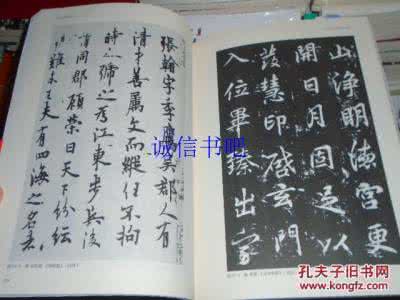 張翰字季鷹吳郡人有
清才善屬文而縱任不拘
時人號之為江東步兵後
謂同郡顧榮曰天下紛紜
禍難未已夫有四海之名者
山淨明德宮更
開日月固足以
發慧印啟玄門
入位畢臻出家
诚信书吧
孔夫子旧书网